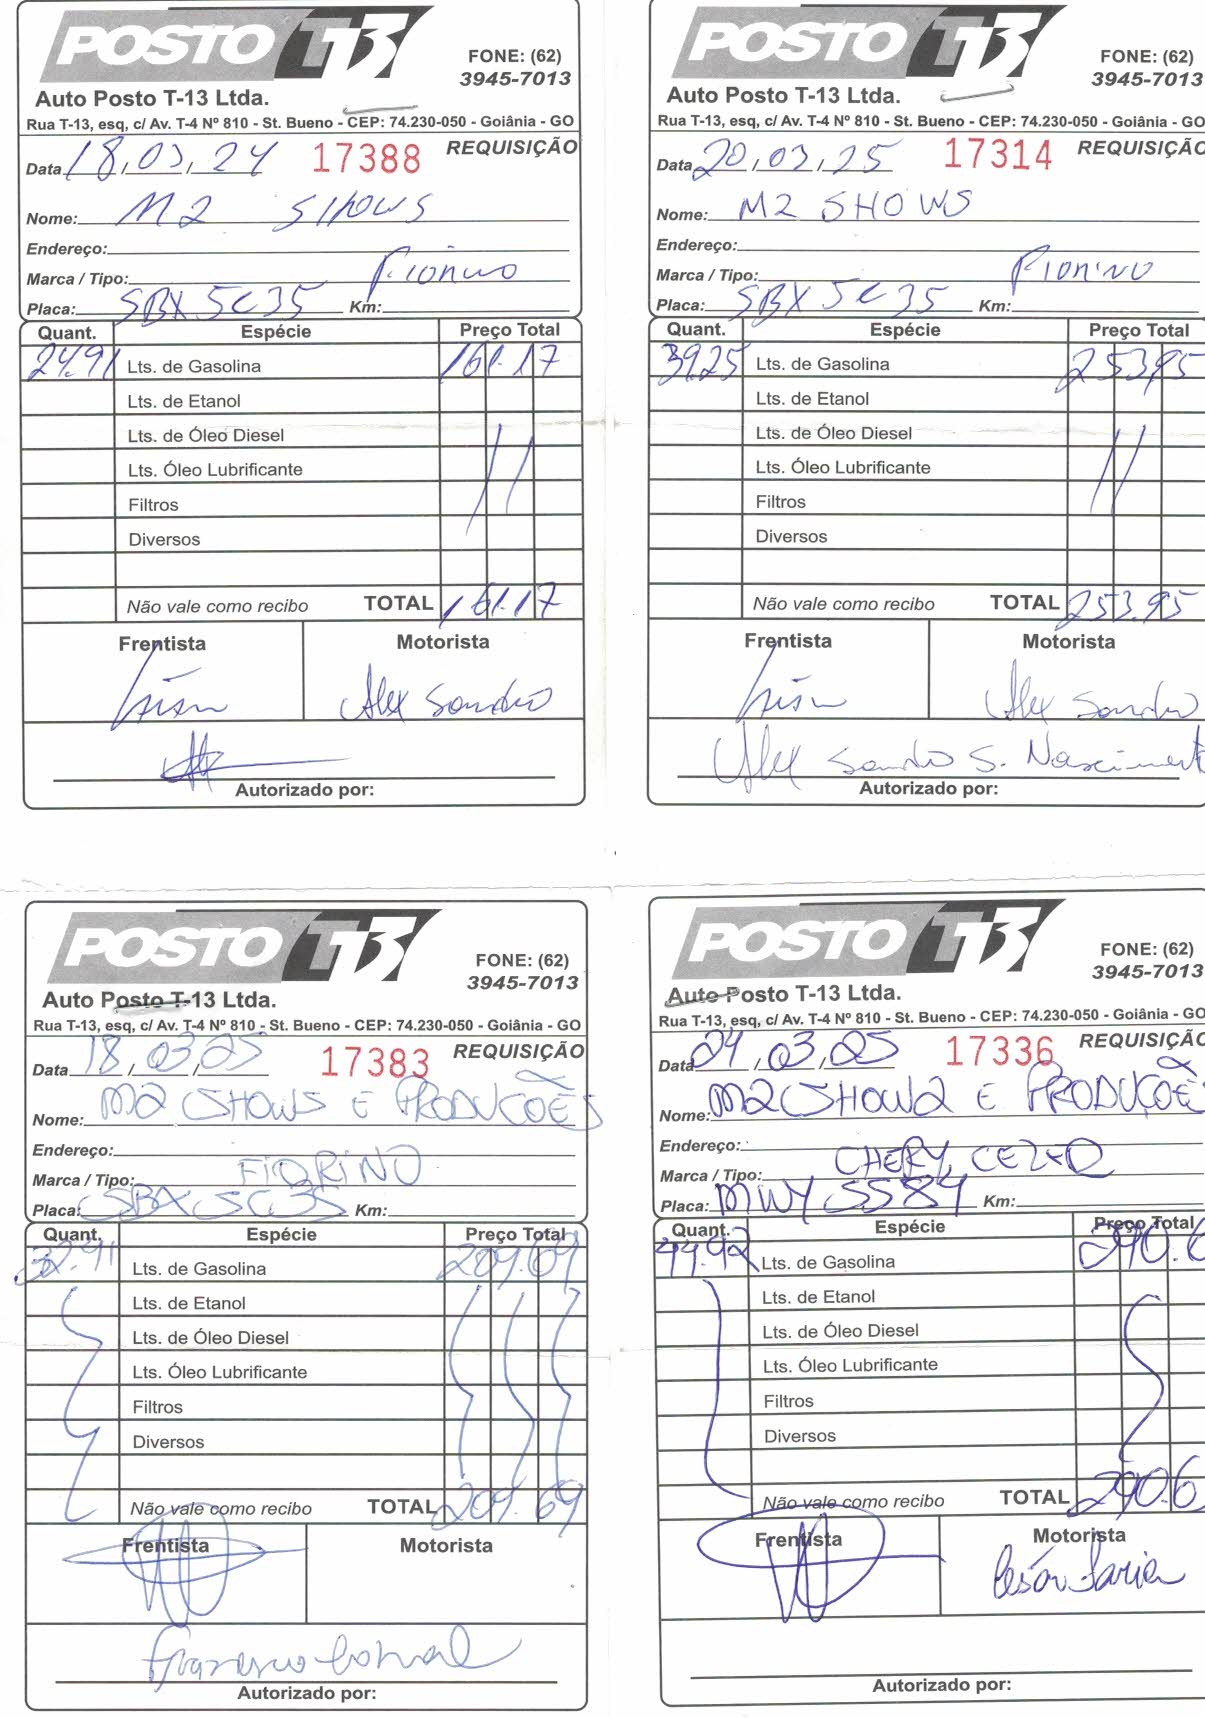 POSTO T13
FONE: (62)
3945-7013
Auto Posto T-13 Ltda.
Rua T-13, esq, c/ Av. T-4 Nº 810 - St. Bueno - CEP: 74.230-050 - Goiânia - GO
Data 18,03,24 17388 REQUISIÇÃO
Nome: M2 SHOWS
Endereço:
Marca / Tipo: Fiorino
Placa: SBX 5C35 Km:
Quant. Espécie Preço Total
24.91 Lts. de Gasolina 161.17
Lts. de Etanol
Lts. de Óleo Diesel
Lts. Óleo Lubrificante
Filtros
Diversos
Não vale como recibo TOTAL 161.17
Frentista Motorista
Alex Sandro
Autorizado por:
POSTO T13
FONE: (62)
3945-7013
Auto Posto T-13 Ltda.
Rua T-13, esq, c/ Av. T-4 Nº 810 - St. Bueno - CEP: 74.230-050 - Goiânia - GO
Data 20,03,25 17314 REQUISIÇÃO
Nome: M2 SHOWS
Endereço:
Marca / Tipo: FIORINO
Placa: SBX 5C35 Km:
Quant. Espécie Preço Total
39.25 Lts. de Gasolina 253.95
Lts. de Etanol
Lts. de Óleo Diesel
Lts. Óleo Lubrificante
Filtros
Diversos
Não vale como recibo TOTAL 253.95
Frentista Motorista
Alex Sandro
Alex Sandro S. Nasciment
Autorizado por:
POSTO T13
FONE: (62)
3945-7013
Auto Posto T-13 Ltda.
Rua T-13, esq, c/ Av. T-4 Nº 810 - St. Bueno - CEP: 74.230-050 - Goiânia - GO
Data 18,03,25 17383 REQUISIÇÃO
Nome: M2 SHOWS E PRODUCOES
Endereço:
Marca / Tipo: FIORINO
Placa: SBX5C35 Km:
Quant. Espécie Preço Total
32.41 Lts. de Gasolina 209.69
Lts. de Etanol
Lts. de Óleo Diesel
Lts. Óleo Lubrificante
Filtros
Diversos
Não vale como recibo TOTAL 209.69
Frentista Motorista
Autorizado por:
POSTO T13
FONE: (62)
3945-7013
Auto Posto T-13 Ltda.
Rua T-13, esq, c/ Av. T-4 Nº 810 - St. Bueno - CEP: 74.230-050 - Goiânia - GO
Data 24,03,25 17336 REQUISIÇÃO
Nome: M2 SHOW2 E PRODUÇÕE
Endereço:
Marca / Tipo: CHERY CEZER
Placa: MWY5584 Km:
Quant. Espécie Preço Total
44.92 Lts. de Gasolina 290.6
Lts. de Etanol
Lts. de Óleo Diesel
Lts. Óleo Lubrificante
Filtros
Diversos
Não vale como recibo TOTAL 290.6
Frentista Motorista
Autorizado por: